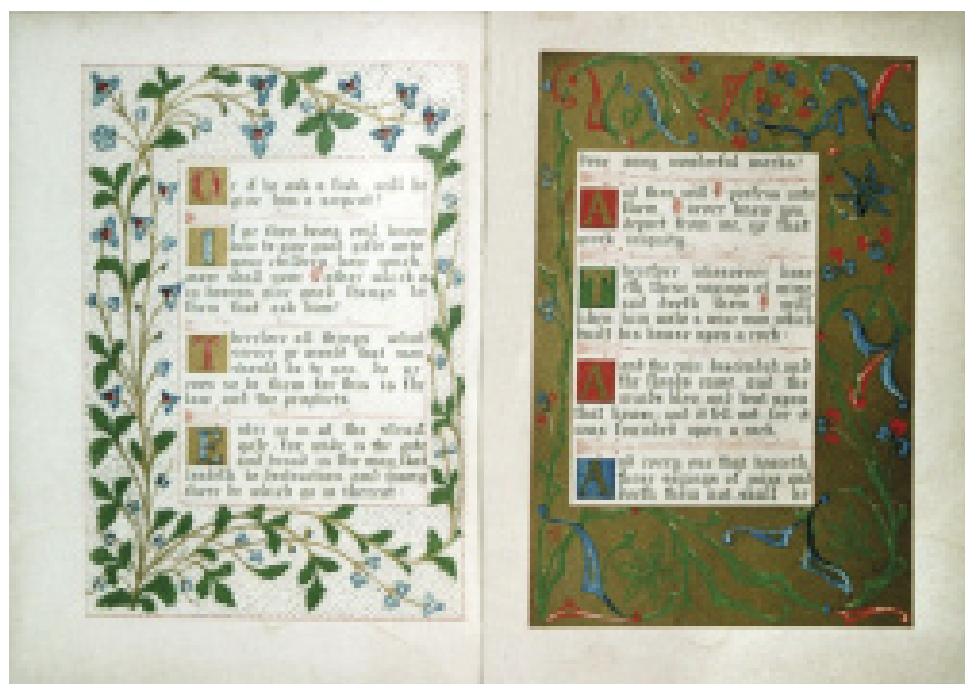 Or if he ask a fish, will he
give him a serpent?
If ye then being evil, know
how to give good gifts unto
your children how much
more shall your Father which is
in heaven give good things to
them that ask him?
Therefore all things what
soever ye would that men
should do to you, do ye
even so to them for this is the
law and the prophets.
Enter ye in at the strait
gate, for wide is the gate
and broad is the way that
leadeth to destruction and many
there be which go in thereat:
done many wonderful works?
And then will I profess unto
them, I never knew you
depart from me, ye that
work iniquity.
Therefore whosoever hear
eth these sayings of mine
and doeth them I will
liken him unto a wise man which
built his house upon a rock:
And the rain descended and
the floods came, and the
winds blew and beat upon
that house; and it fell not for it
was founded upon a rock.
And every one that heareth
these sayings of mine and
doeth them not shall be